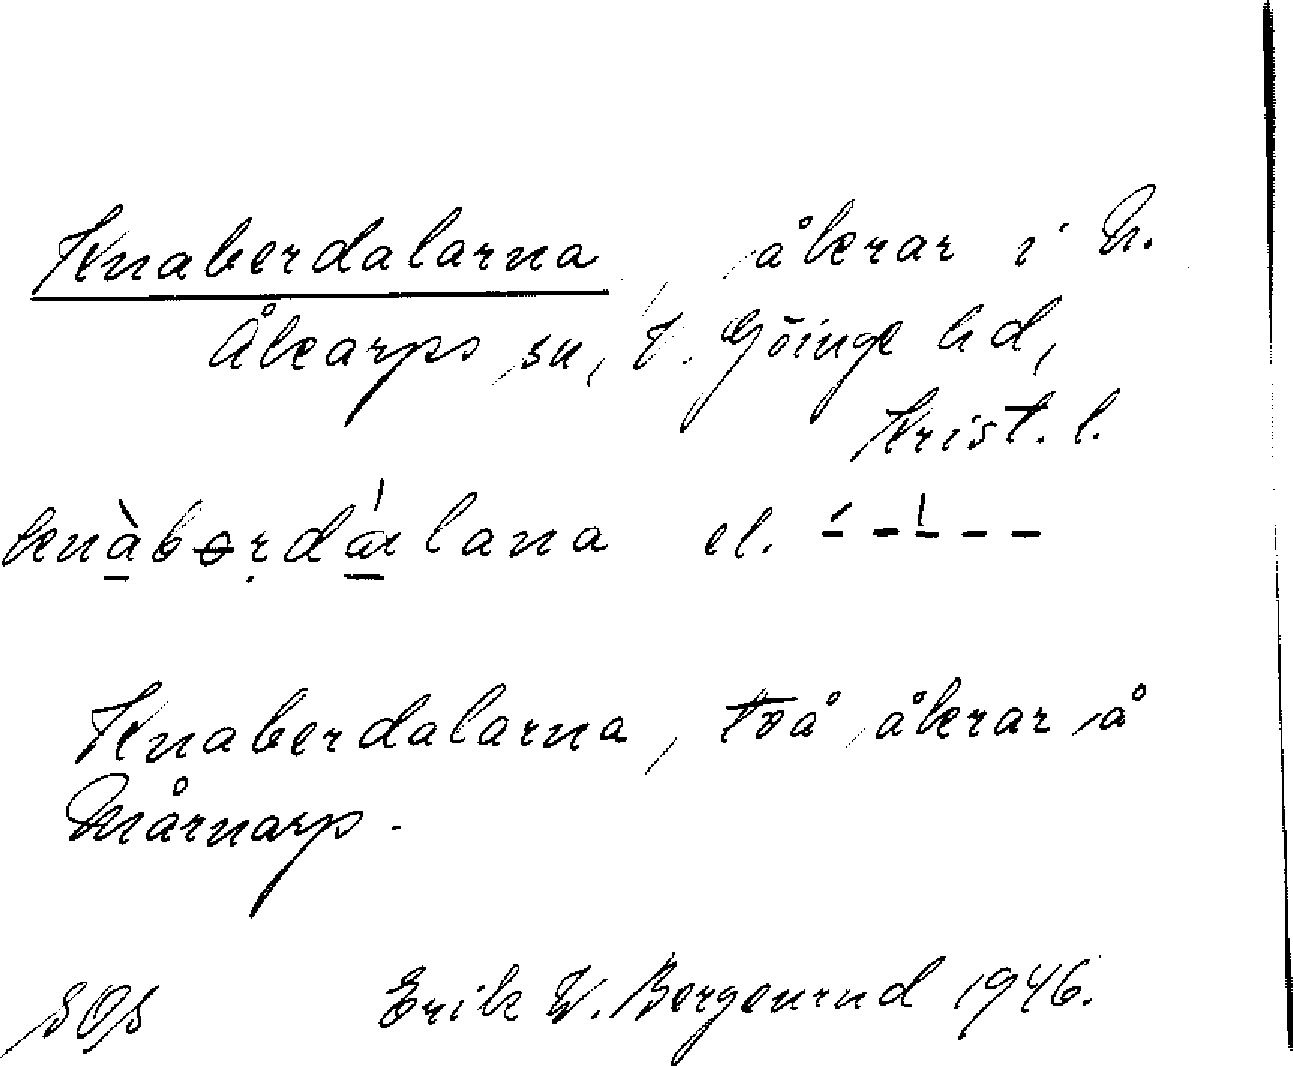 Knaberdalarna, åkrar i N.
Åkarps sn, V. Göinge hd,
Krist. l.
knàbɵrdálana el. –́ – –̍ – –
Knaberdalarna, två åkrar å
Mårnarp.
SOS Erik W. Bergenrud 1946.